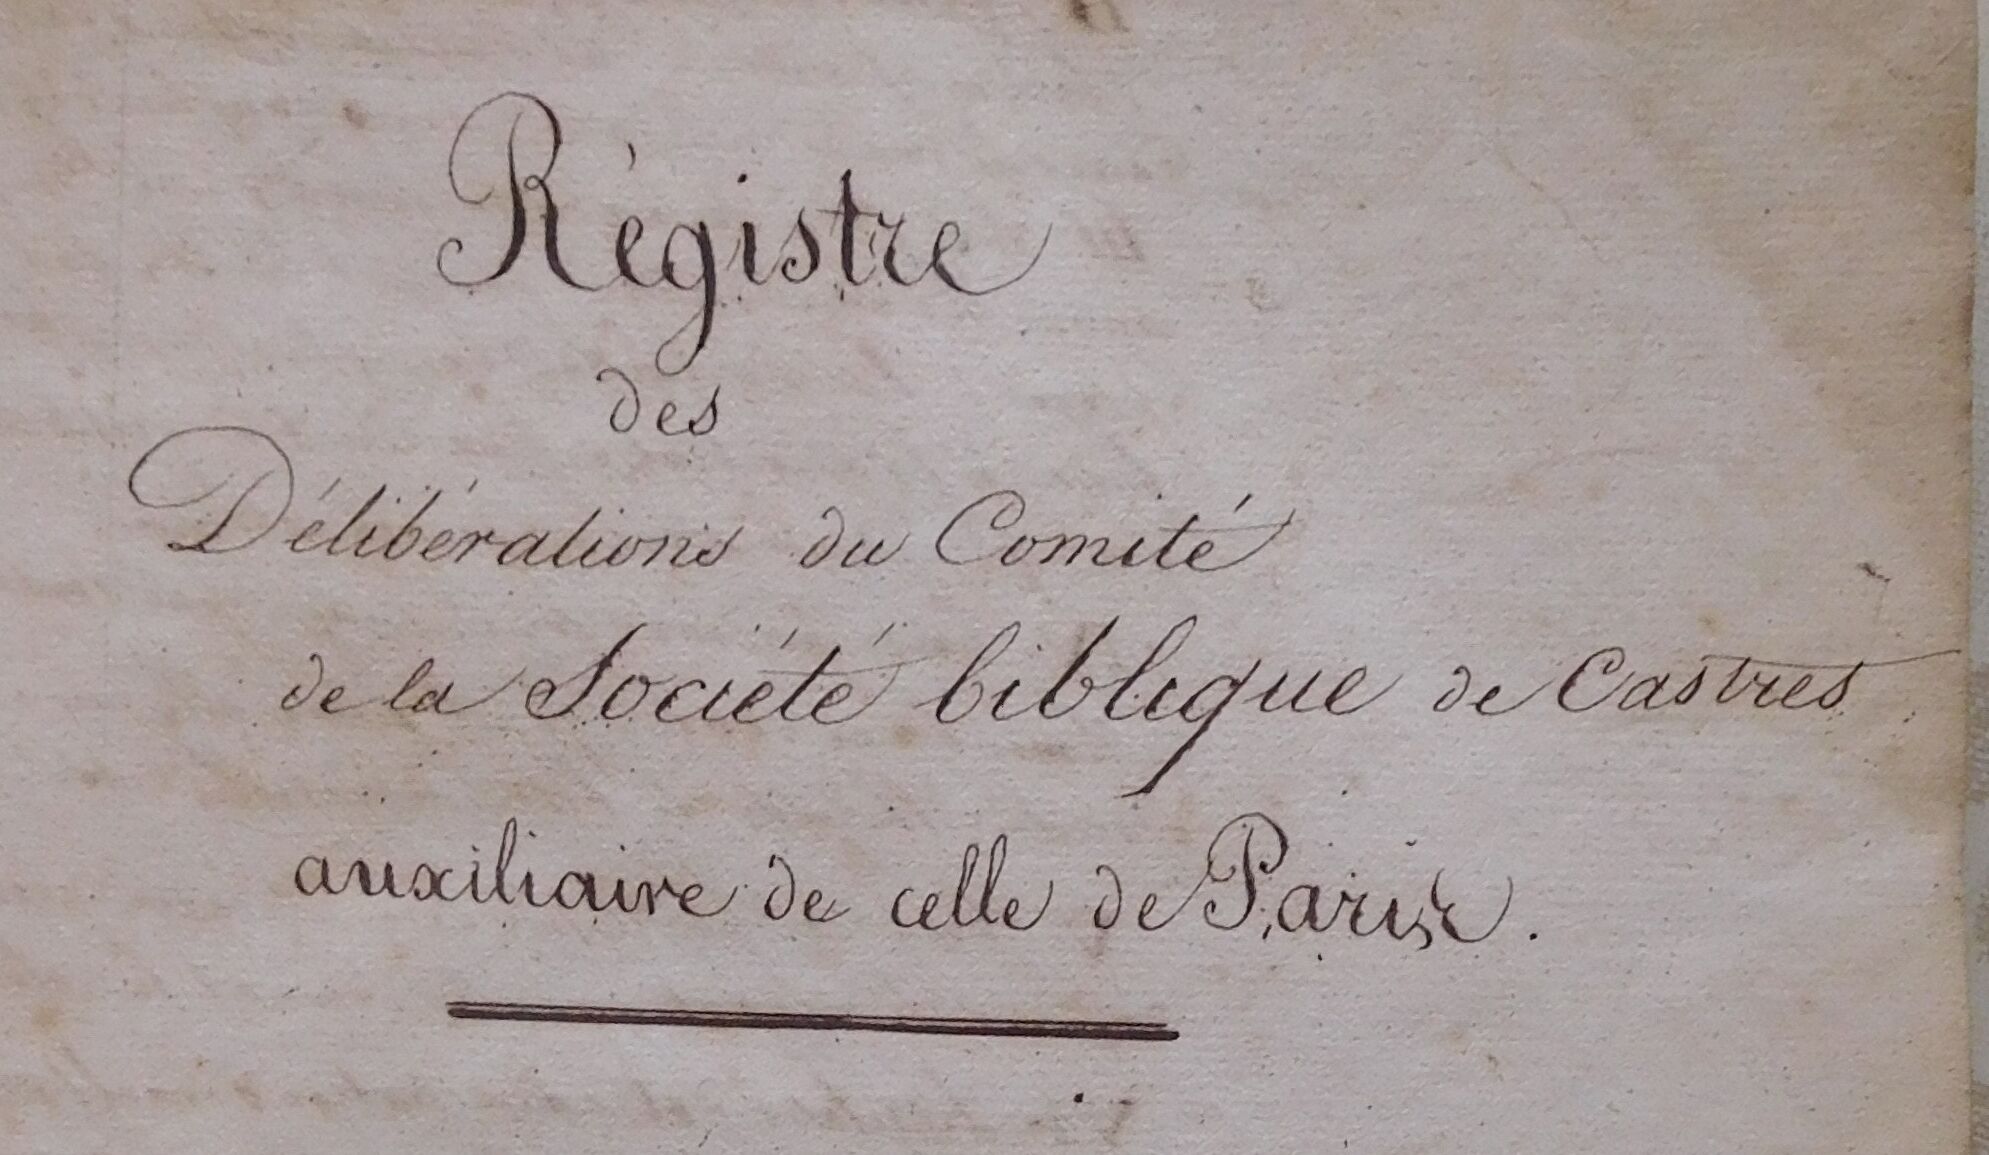 Régistre
des
Délibérations du Comité
de la Société biblique de Castres
auxiliaire de celle de Paris.